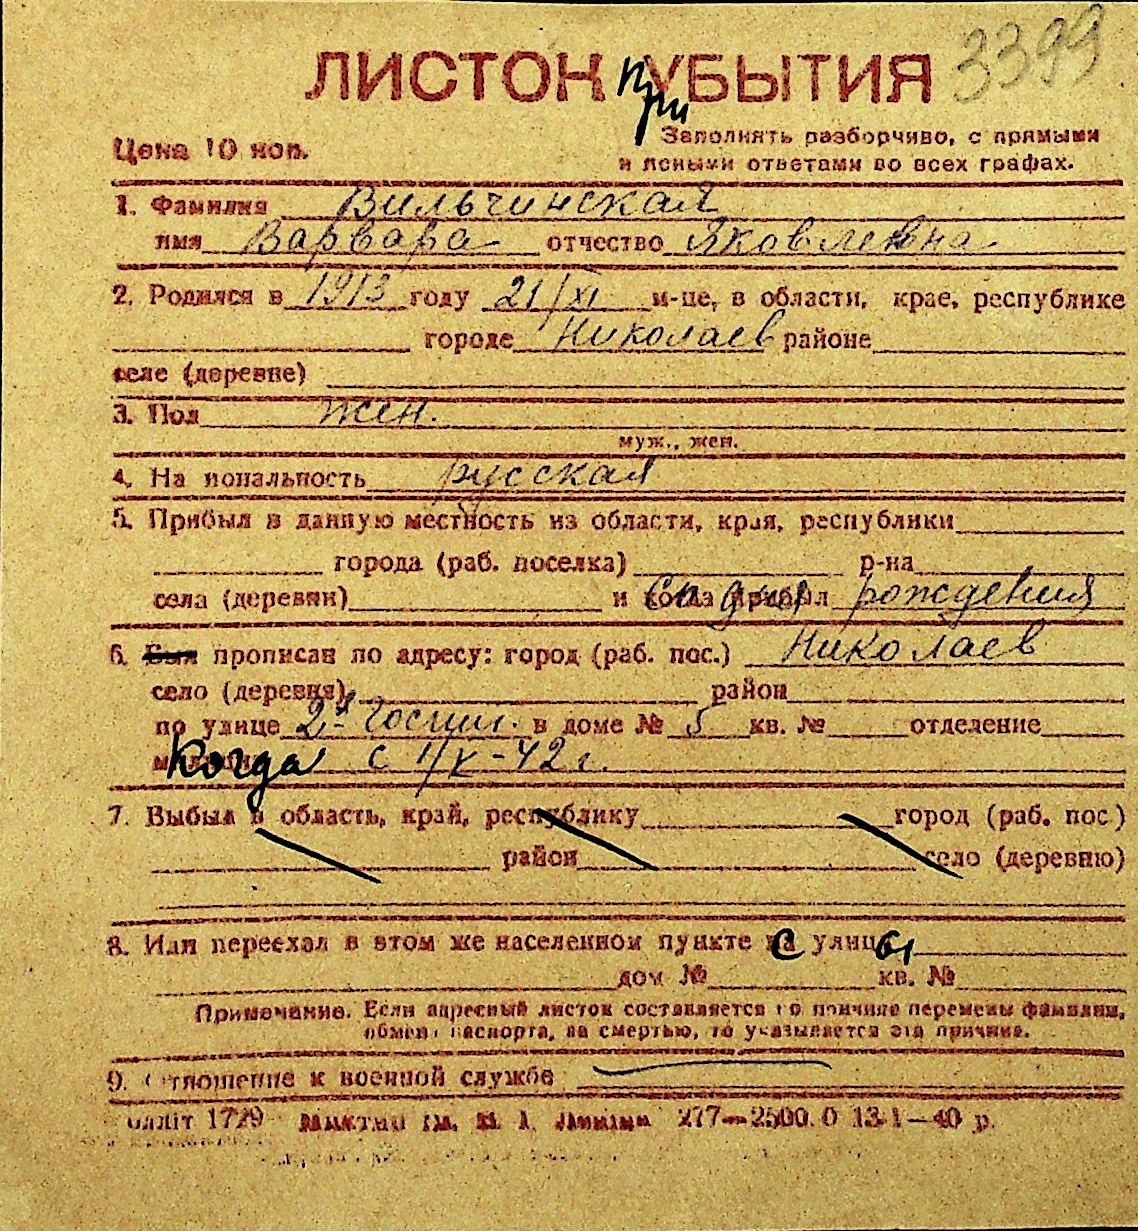 3399
ЛИСТОК При УБЫТИЯ
Цена 10 коп.
Заполнять разборчиво, с прямыми
и ясными ответами во всех графах.
1. Фамилия Вильчинская
имя Варвара отчество Яковлевна
2. Родился в 1913 году 21/XI м-це, в области, крае, республике
городе Николаев районе
селе (деревне)
3. Пол жен.
муж., жен.
4. На иональность русская
5. Прибыл в данную местность из области, края, республики
города (раб. поселка) р-на
села (деревни) и когда прибыл со дня рождения
6. Был прописан по адресу: город (раб. пос.) Николаев
село (деревня) район
по улице 2я Госпит. в доме № 5 кв. № отделение
Когда с 1/X-42 г.
7. Выбыл в область, край, республику город (раб. пос.)
район село (деревню)
8. Или переехал в этом же населенном пункте с улицы
дом № кв. №
Примечание. Если адресный листок составляется по причине перемены фамилии,
обмена паспорта, за смертью, то указывается эта причина.
9. Отношение к военной службе
1729 277—2500.0 13-1—40 р.